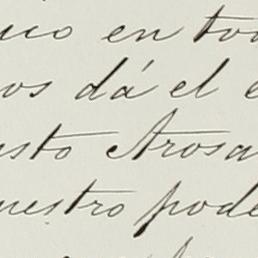 uco en tod
os dá el e
usto Arosa
uestro pode